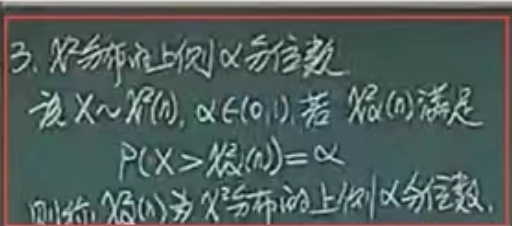 3. χ²分布的上侧α分位数
设X~χ²(n), α∈(0,1), 若 χ²α(n)满足
P(X>χ²α(n))=α
则称χ²α(n)为χ²分布的上侧α分位数.